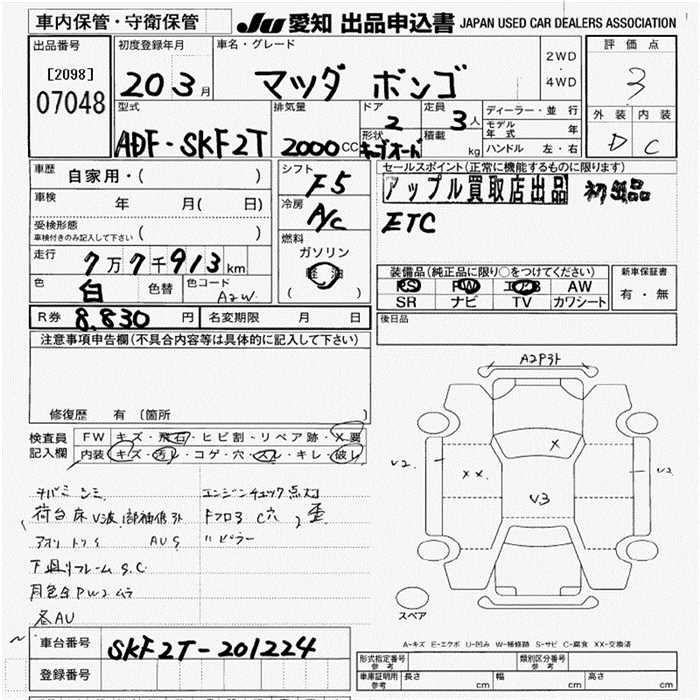 車内保管・守衛保管
JU 愛知 出品申込書 JAPAN USED CAR DEALERS ASSOCIATION
出品番号
[2098]
07048
初度登録年月
20 3 月
車名・グレード
マツダ ボンゴ
2WD
4WD
評価点
3
外装 内装
D C
型式
ADF-SKF2T
排気量
2000 CC
ドア
2
形状
定員
3 人
積載
kg
ディーラー・並行
モデル年式 年
ハンドル 左・右
車歴
自家用・( )
車検
年 月( 日)
受検形態
車検付きのみ記入して下さい ( )
走行
7万7千913 km
色
白
色替
色コード
A2W
シフト
F5
冷房
A/C
燃料
ガソリン
( )
セールスポイント(正常に機能するものに限ります)
アップル買取店出品
ETC
装備品(純正品に限り○をつけてください)
PS PW エアB AW
SR ナビ TV カワシート
新車保証書
有・無
R券 8,830 円
名変期限 月 日
後日品
注意事項申告欄(不具合内容等は具体的に記入して下さい)
修復歴 有 (箇所 )
検査員
記入欄
FW キズ・飛石・ヒビ割・リペア跡・X要
内装 キズ・汚レ・コゲ・穴・スレ・キレ・破レ
エンジンチェック点灯
荷台床
下廻りフレームS.C
各AU
A2P3ト
X
V2
XX
V3
V2
スペア
A-キズ E-エクボ U-凹み W-補修跡 S-サビ C-腐食 XX-交換済
車台番号
SKF2T-201224
登録番号
形式指定番号
参考
類別区分番号
参考
車庫証明用
参考
長さ cm
幅 cm
高さ cm